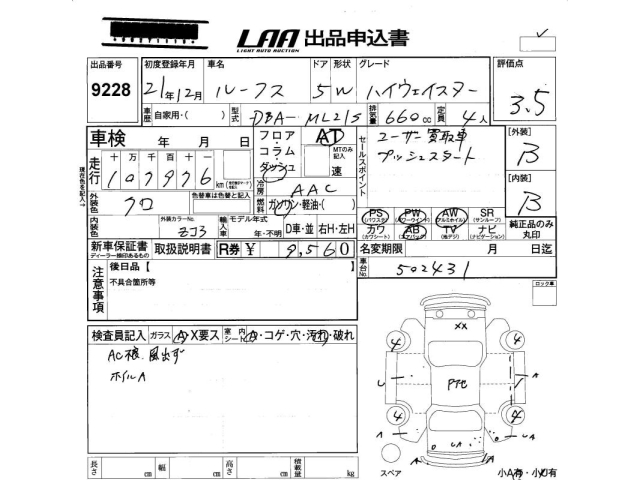 LAA 出品申込書
LIGHT AUTO AUCTION
出品番号 初度登録年月 車名 ドア 形状 グレード 評価点
9228 21年12月 ルークス 5 W ハイウェイスター 3.5
車歴 自家用・( ) 型式 DBA-ML21S 排気量 660cc 定員 4人
車検 年 月 日
フロア・コラム・ダッシュ AT
MTのみ記入 速
セールスポイント
ユーザー買取車
プッシュスタート
[外装]
B
[内装]
B
走行 十 万 千 百 十
107976 km
冷房 AAC
外装色 クロ
色替車は色替と記入
燃料 ガソリン・軽油・( )
内装色
外装カラーNo. ZJ3
輸入車 モデル年式 年・不明 D車・並 右H・左H
PS (パワステ) PW (パワーウインド) AW (アルミホイル) SR (サンルーフ)
カワ (カワシート) AB (エアバッグ) TV (地デジ) ナビ (ナビゲーション)
純正品のみ丸印
新車保証書 取扱説明書 R券 ¥ 9,560
ディーラー捺印あるもの
名変期限 月 日迄
車台No. 502431
注意事項
後日品【
不具合箇所等
ロック車
検査員記入 ガラス A・X要ス 室内シート A・コゲ・穴・汚れ・破れ
AC 風出ず
ホイルA
XX
4
4
4
4
U
A
A
A
UA
スペア
小A有・小U有
長さ cm 幅 cm 高さ cm 積載量 kg